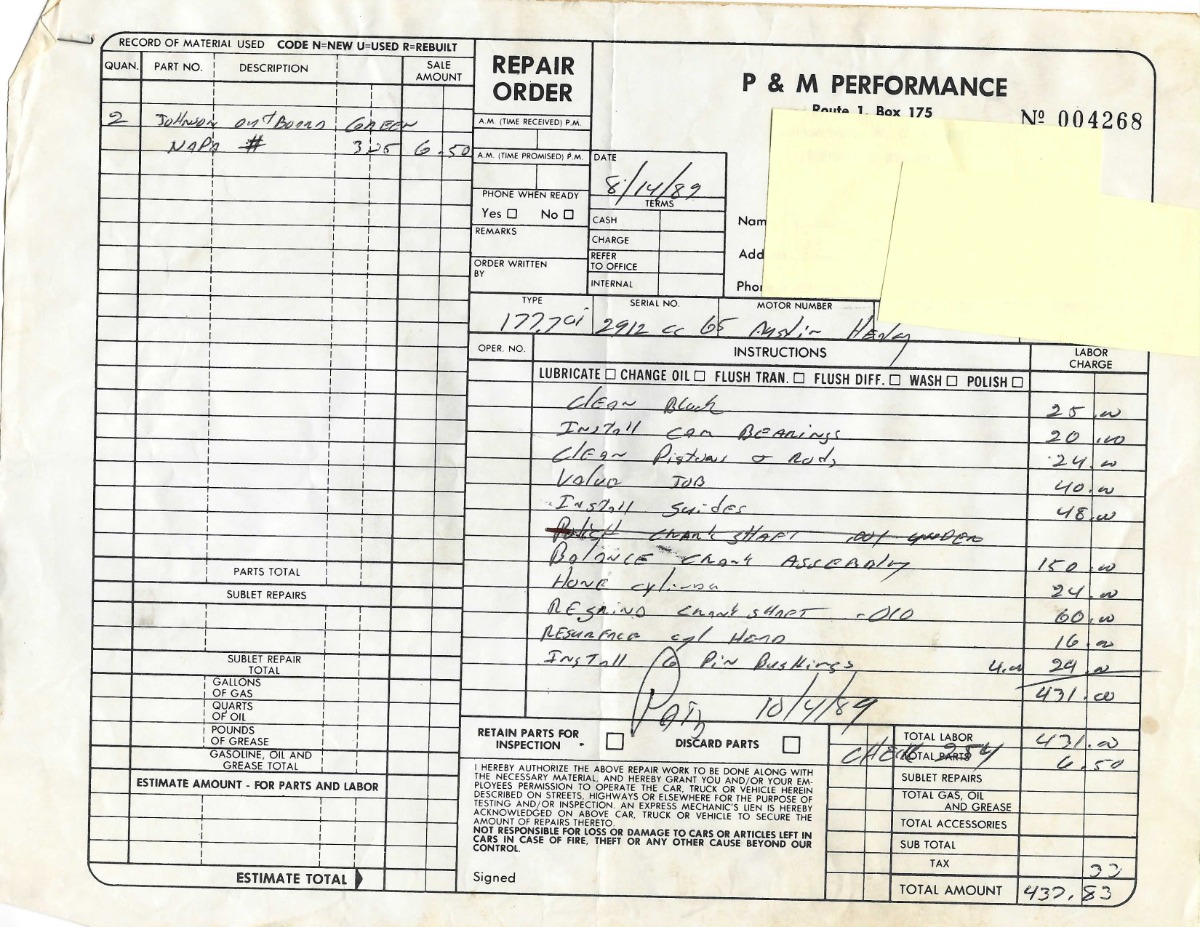 RECORD OF MATERIAL USED CODE N=NEW U=USED R=REBUILT
QUAN. PART NO. DESCRIPTION SALE AMOUNT
2 Johnson outBoard GREEN
NAPA # 325 6.50
PARTS TOTAL
SUBLET REPAIRS
SUBLET REPAIR TOTAL
GALLONS OF GAS
QUARTS OF OIL
POUNDS OF GREASE
GASOLINE, OIL AND GREASE TOTAL
ESTIMATE AMOUNT - FOR PARTS AND LABOR
ESTIMATE TOTAL
REPAIR ORDER
A.M. (TIME RECEIVED) P.M.
A.M. (TIME PROMISED) P.M.
PHONE WHEN READY
Yes No
REMARKS
ORDER WRITTEN BY
DATE
8/14/89
TERMS
CASH
CHARGE
REFER TO OFFICE
INTERNAL
P & M PERFORMANCE
Route 1, Box 175
Nº 004268
Nam
Add
Phon
TYPE SERIAL NO. MOTOR NUMBER
2912 cc 65 Austin Henly
OPER. NO. INSTRUCTIONS LABOR CHARGE
LUBRICATE CHANGE OIL FLUSH TRAN. FLUSH DIFF. WASH POLISH
Clean Block 25.00
Install CAM BEARINGS 20.00
Clean Pistons & Rods 24.00
Valve JOB 40.00
Install Guides 48.00
Polish CRANKSHAFT .001 UNDER
Balance Crank ASSEMBLY 150.00
Hone cylinder 24.00
REGRIND CRANKSHAFT -010 60.00
RESURFACE cyl HEAD 16.00
Install 6 Pin Bushings 4.00 24.00
431.00
Paid 10/4/89
RETAIN PARTS FOR INSPECTION - DISCARD PARTS
I HEREBY AUTHORIZE THE ABOVE REPAIR WORK TO BE DONE ALONG WITH
THE NECESSARY MATERIAL, AND HEREBY GRANT YOU AND/OR YOUR EM-
PLOYEES PERMISSION TO OPERATE THE CAR, TRUCK OR VEHICLE HEREIN
DESCRIBED ON STREETS, HIGHWAYS OR ELSEWHERE FOR THE PURPOSE OF
TESTING AND/OR INSPECTION. AN EXPRESS MECHANIC'S LIEN IS HEREBY
ACKNOWLEDGED ON ABOVE CAR, TRUCK OR VEHICLE TO SECURE THE
AMOUNT OF REPAIRS THERETO.
NOT RESPONSIBLE FOR LOSS OR DAMAGE TO CARS OR ARTICLES LEFT IN
CARS IN CASE OF FIRE, THEFT OR ANY OTHER CAUSE BEYOND OUR
CONTROL.
Signed
TOTAL LABOR 431.00
CHECK 254
TOTAL PARTS 6.50
SUBLET REPAIRS
TOTAL GAS, OIL AND GREASE
TOTAL ACCESSORIES
SUB TOTAL
TAX 33
TOTAL AMOUNT 437.83